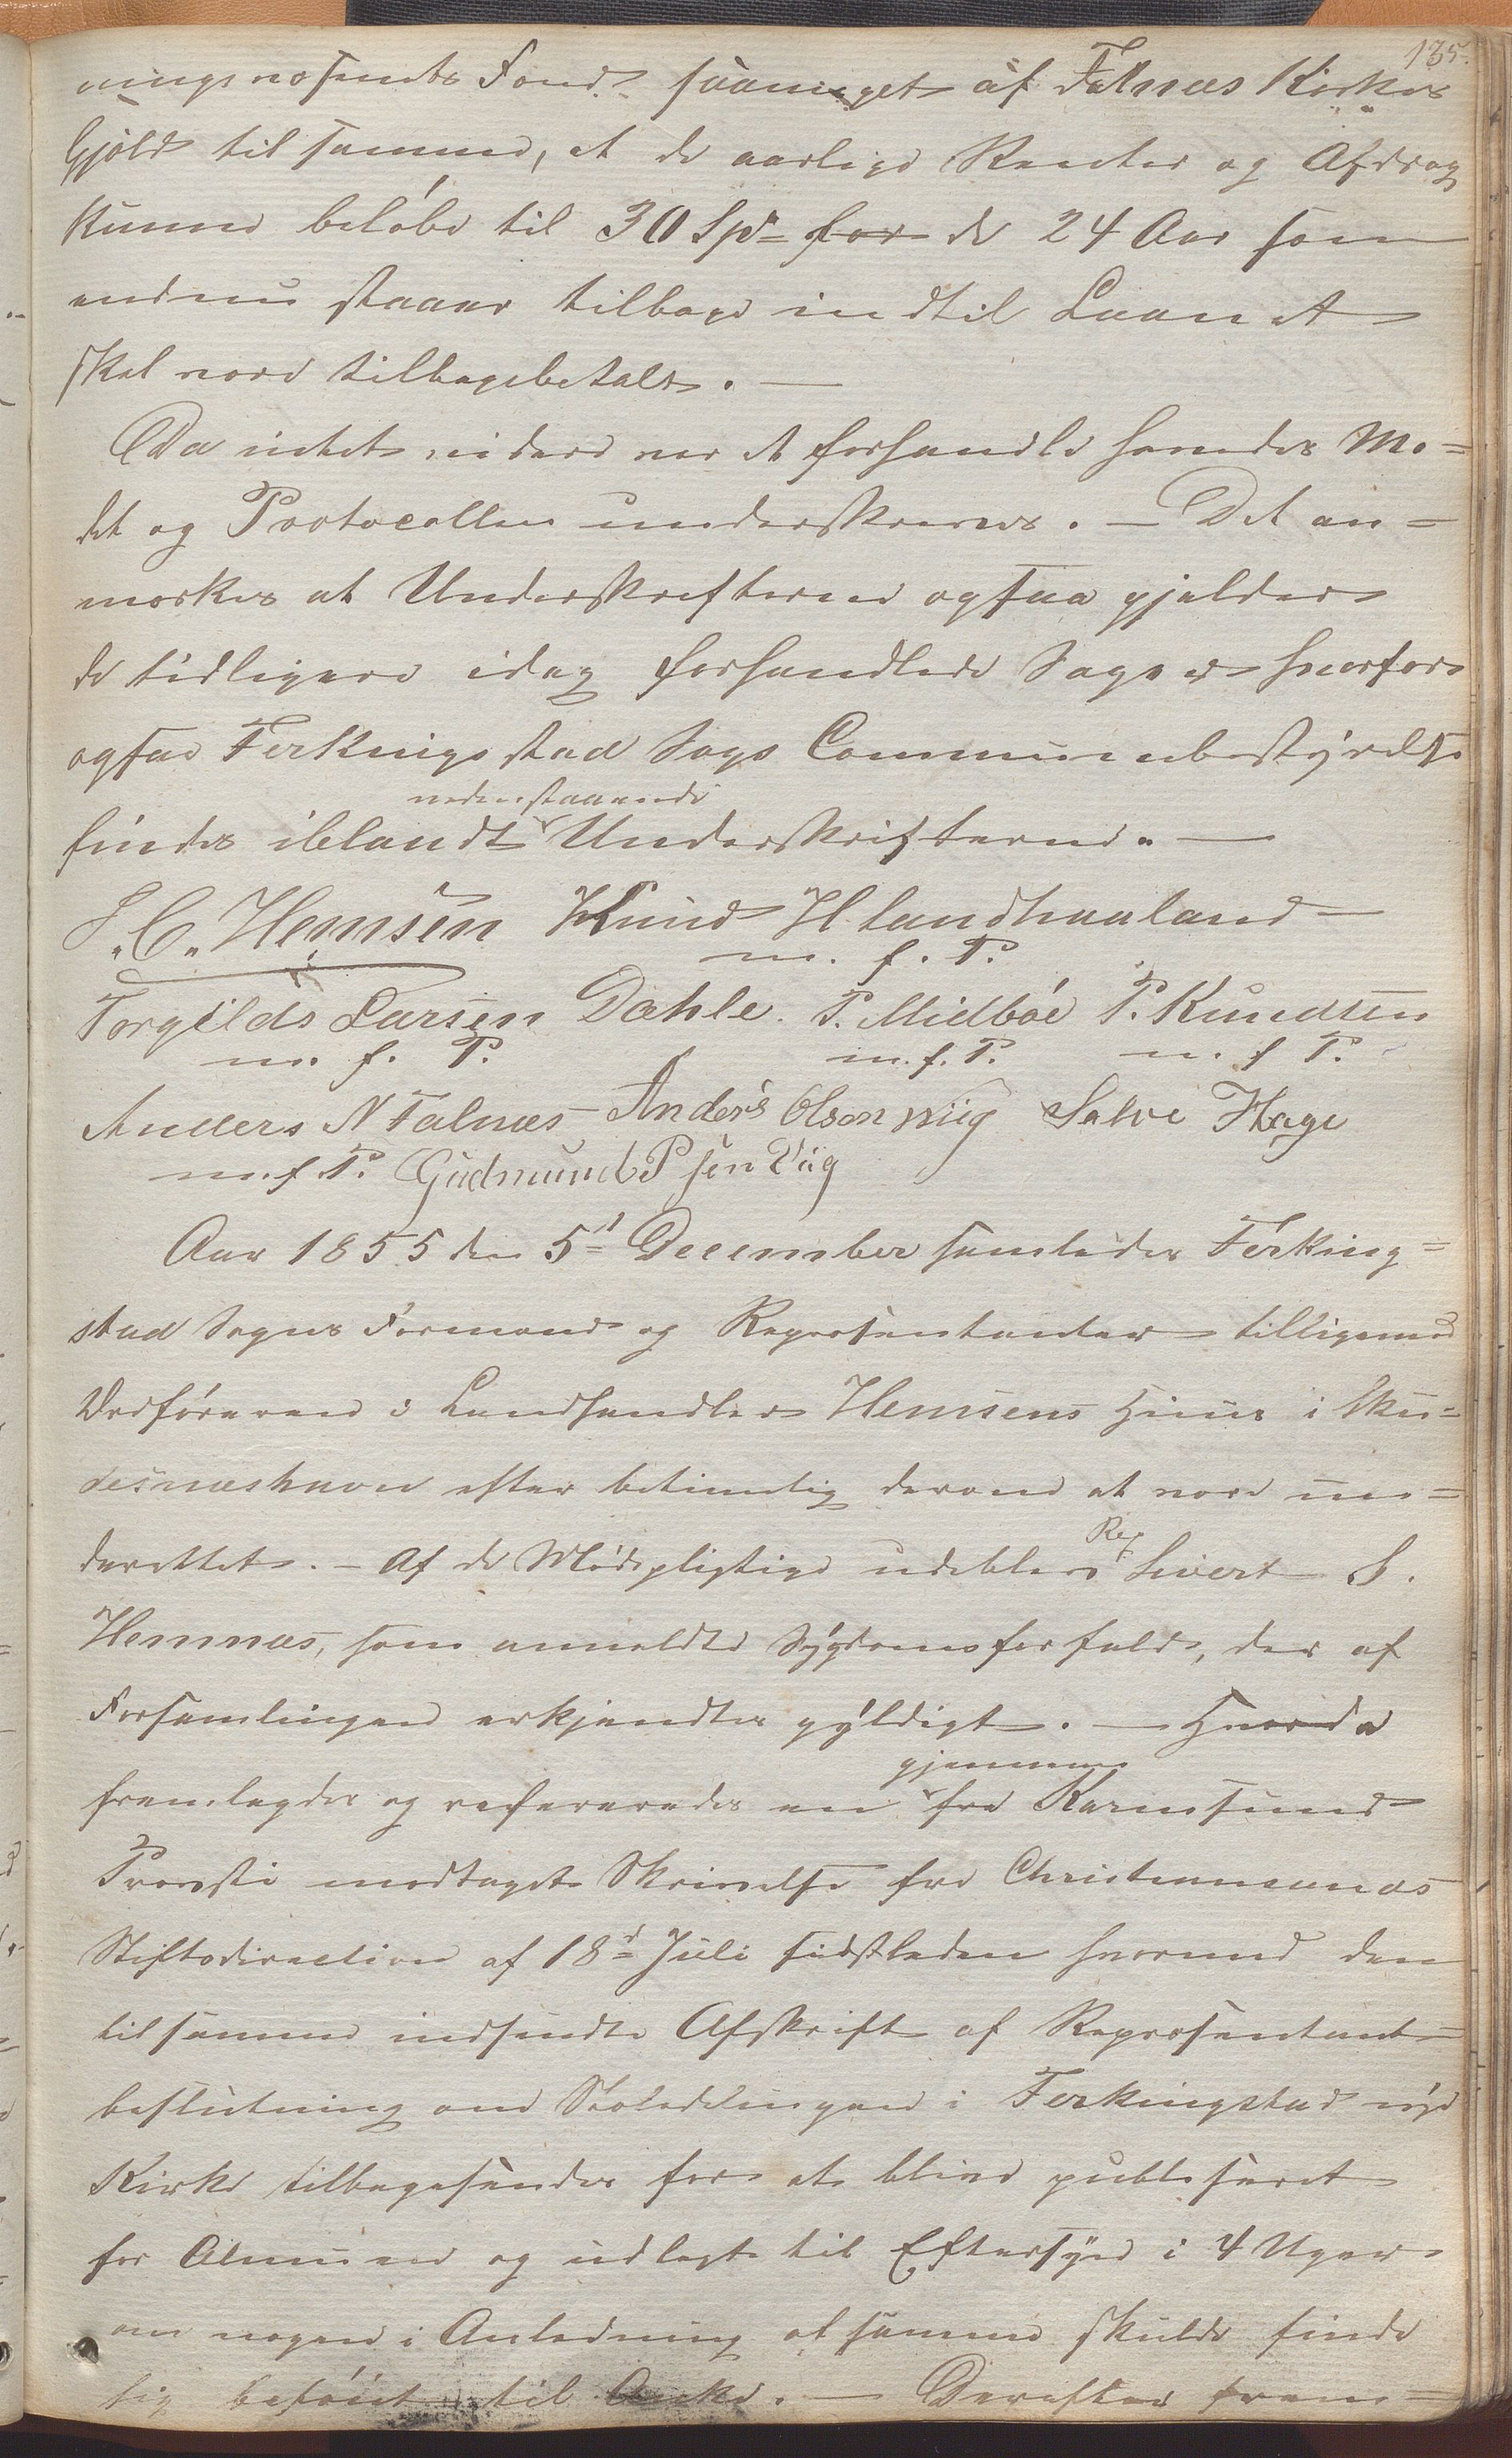 135.
ningsvæsenets Fond saameget af Falnæs Kirkes
Gjæld til samme, at de aarlige Renter og Afdrag
kunne beløbe til 30 Spd for de 24 Aar som
endnu staaer tilbage indtil Laanet
skal være tilbagebetalt. —
Da intet videre var at forhandle hævedes Mø=
det og Protocollen underskreves. — Det an=
mærkes at Underskrifterne ogsaa gjælder
de tidligere idag forhandlede Sager hvorfor
ogsaa Ferkingstad Sogs Communebestyrelse
findes iblandt nedenstaaende Underskrifterne. —
S. C. Hemsen Knud H Landhaaland
m. f. P.
Torgilds Larsen Dahle. P. Midbøe P. Knudsen
m. f. P. m. f. P. m. f P.
Anders N Falnæs Anders Olson wiig Salve Hage
m. f. P. Gudmund P sen Viig
Aar 1855 den 5t December samledes Ferking=
stad Sogns Formænd og Repræsentanter tilligemed
Ordføreren i Landhandler Hemsens Huus i Sku=
desnæshavn efter betimelig derom at være un=
derettet. — Af de Mødepligtige udeblev Rep Sivert S.
Hemnæs, som anmeldte Sygdomsforfald, der af
Forsamlingen erkjendtes gyldigt. — Hvorda
fremlagdes og refereredes en gjennem fra Karmsund
Provsti modtaget Skrivelse fra Christiansands
Stiftsdirection af 18d Juli sidstleden hvormed den
tilsamme indsendte Afskrift af Repræsentant=
beslutning om Stoledelingen i Ferkingstad nye
Kirke tilbagesendes for at blive publiseret
for Almuen og udlagt til Eftersyn i 4 Uger
om nogen i Anledning af samme skulde finde
sig beføiet til Anke. — Derefter frem=